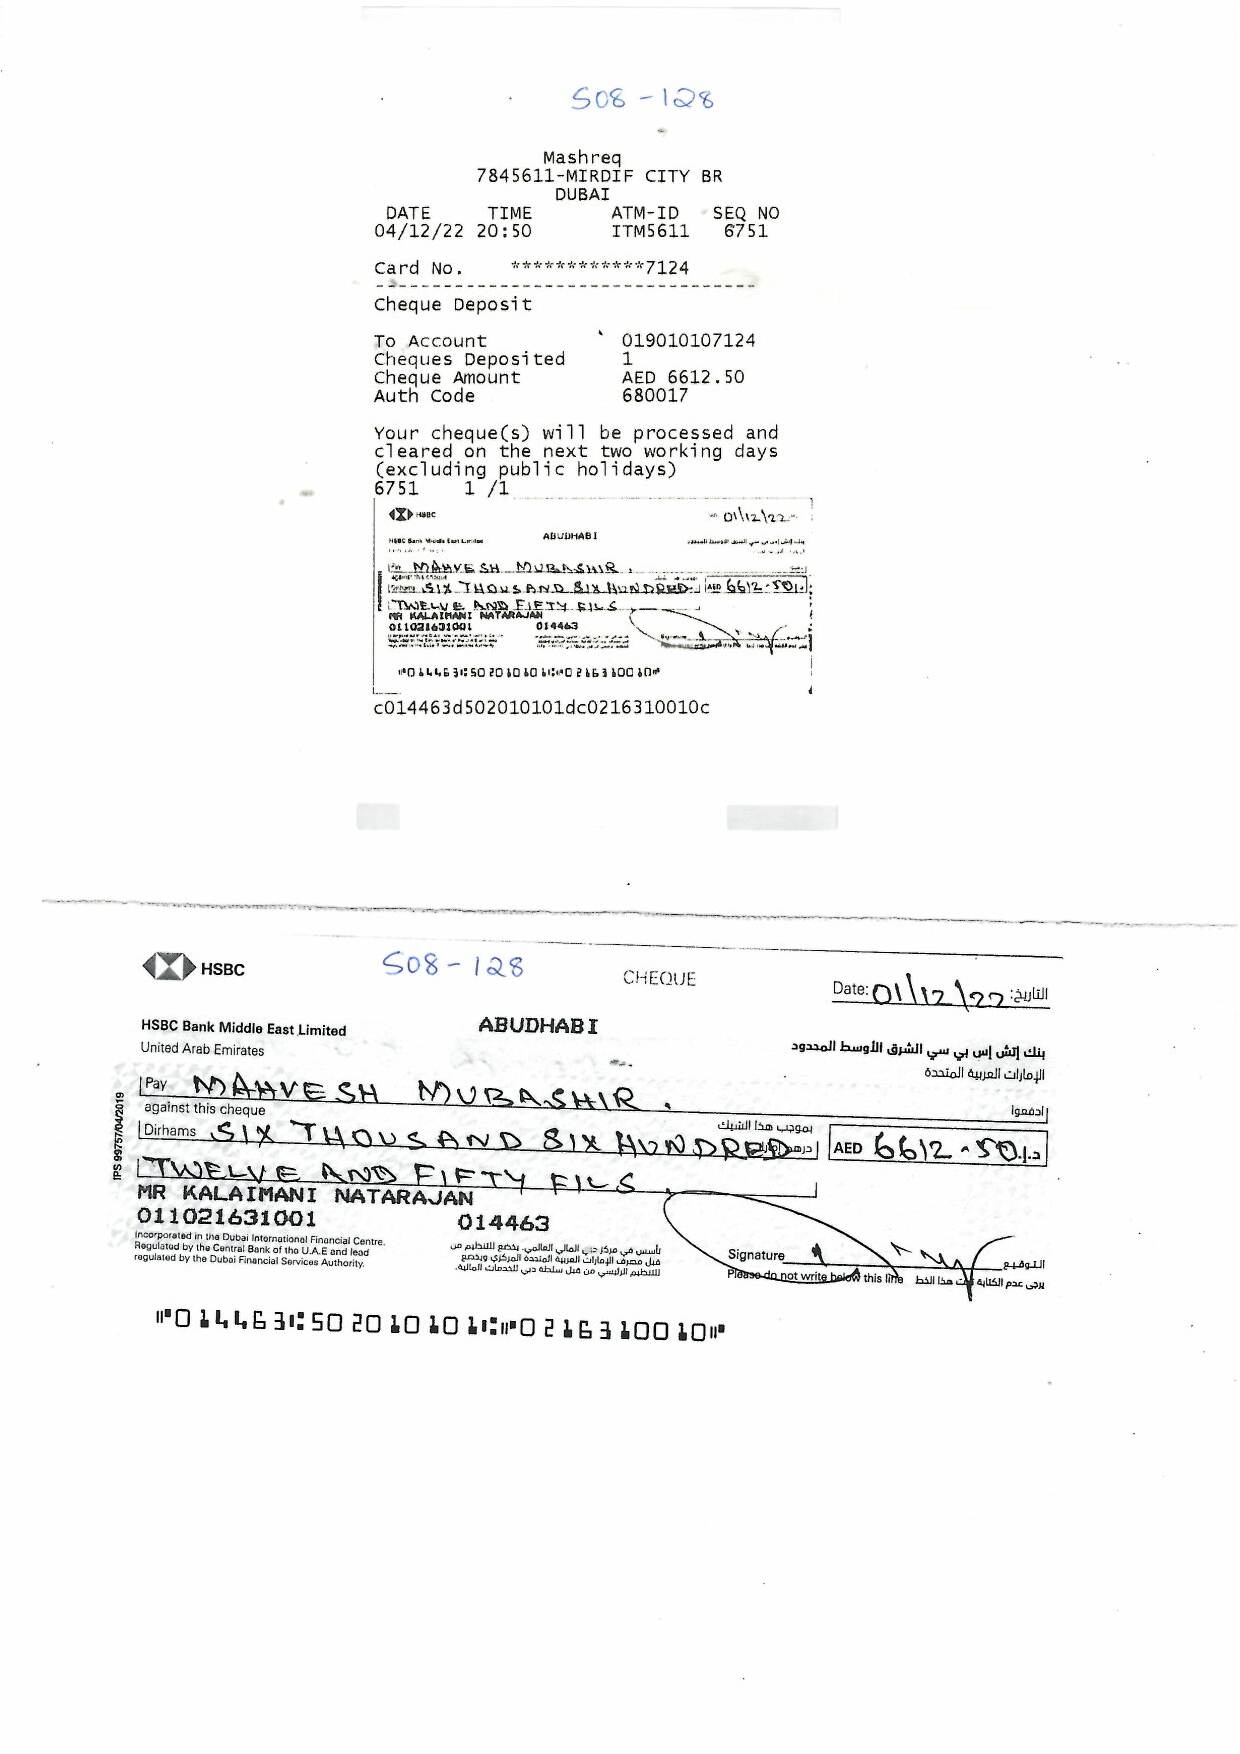 S08-128
Mashreq
7845611-MIRDIF CITY BR
DUBAI
DATE TIME ATM-ID SEQ NO
04/12/22 20:50 ITM5611 6751
Card No. ************7124
Cheque Deposit
To Account 019010107124
Cheques Deposited 1
Cheque Amount AED 6612.50
Auth Code 680017
Your cheque(s) will be processed and
cleared on the next two working days
(excluding public holidays)
6751 1 /1
HSBC 01/12/22
HSBC Bank Middle East Limited ABUDHABI بنك إتش إس بي سي الشرق الأوسط المحدود
Pay MAHVESH MUBASHIR.
against this cheque
Dirhams SIX THOUSAND SIX HUNDRED AED 6612.50
TWELVE AND FIFTY FILS
MR KALAIMANI NATARAJAN
011021631001 014463
Signature
c014463d502010101dc0216310010c
HSBC S08-128 CHEQUE Date: 01\12\22 التاريخ:
HSBC Bank Middle East Limited ABUDHABI بنك إتش إس بي سي الشرق الأوسط المحدود
United Arab Emirates الإمارات العربية المتحدة
Pay MAHVESH MUBASHIR. إدفعوا
against this cheque بموجب هذا الشيك
Dirhams SIX THOUSAND SIX HUNDRED AED 6612.50 د.إ.
TWELVE AND FIFTY FILS
MR KALAIMANI NATARAJAN
011021631001 014463
Incorporated in the Dubai International Financial Centre.
Regulated by the Central Bank of the U.A.E and lead
regulated by the Dubai Financial Services Authority.
تأسس في مركز دبي المالي العالمي. يخضع للتنظيم من
قبل مصرف الإمارات العربية المتحدة المركزي ويخضع
للتنظيم الرئيسي من قبل سلطة دبي للخدمات المالية.
Signature التوقيع
Please do not write below this line يرجى عدم الكتابة تحت هذا الخط
⑈014463⑆502010101⑆⑈0216310010⑈
IPS 99757/04/2019